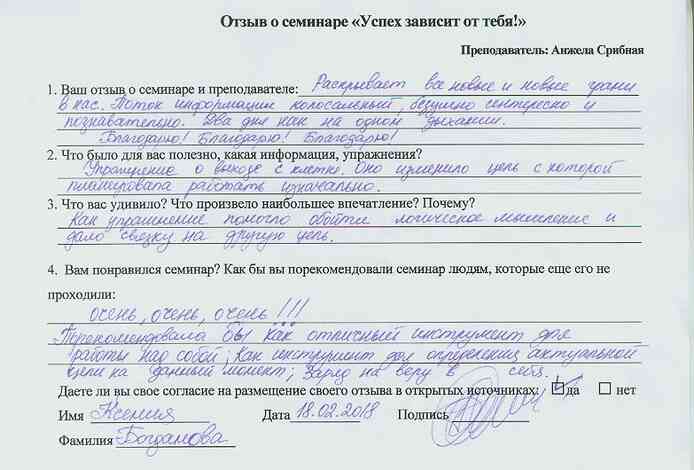 Отзыв о семинаре «Успех зависит от тебя!»
Преподаватель: Анжела Срибная
1. Ваш отзыв о семинаре и преподавателе: Раскрывает все новые и новые грани
в нас. Поток информации колосальный, безумно интересно и
познавательно. Два дня как на одном дыхании.
Благодарю! Благодарю! Благодарю!
2. Что было для вас полезно, какая информация, упражнения?
Упражнение о выходе с клетке. Оно изменило цель с которой
планировала работать изначально.
3. Что вас удивило? Что произвело наибольшее впечатление? Почему?
Как упражнение помогло обойти логическое мышление и
дало связку на другую цель.
4. Вам понравился семинар? Как бы вы порекомендовали семинар людям, которые еще его не
проходили:
очень, очень, очень!!!
Порекомендовала бы как отличный инструмент для
работы над собой; Как инструмент для определения актуальной
цели на данный момент; Заряд на веру в себя.
Даете ли вы свое согласие на размещение своего отзыва в открытых источниках: да нет
Имя Ксения Дата 18.02.2018 Подпись
Фамилия Богданова